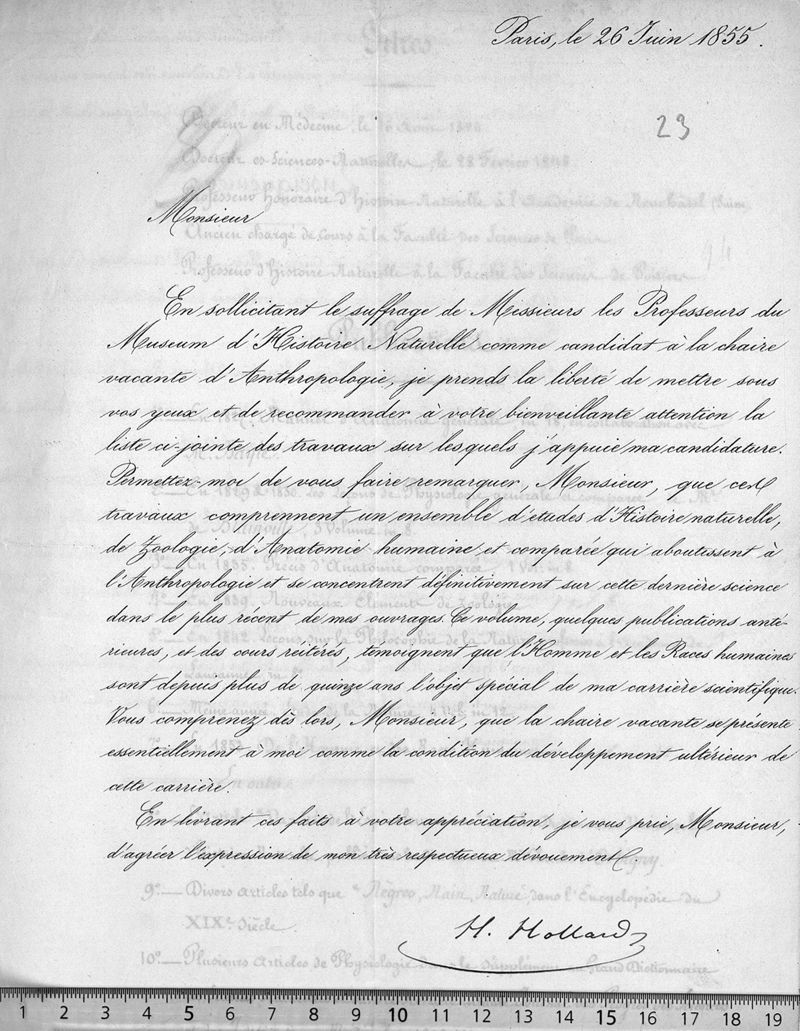 Paris, le 26 Juin 1855.
23
Monsieur
En sollicitant le suffrage de Messieurs les Professeurs du
Museum d'Histoire Naturelle comme candidat à la chaire
vacante d'Anthropologie, je prends la liberté de mettre sous
vos yeux et de recommander à votre bienveillante attention la
liste ci-jointe des travaux sur lesquels j'appuie ma candidature.
Permettez-moi de vous faire remarquer, Monsieur, que ces
travaux comprennent un ensemble d'études d'Histoire naturelle,
de Zoologie, d'Anatomie humaine et comparée qui aboutissent à
l'Anthropologie et se concentrent définitivement sur cette dernière science
dans le plus récent de mes ouvrages. Ce volume, quelques publications anté-
rieures, et des cours reitérés, témoignent que l'Homme et les Races humaines
sont depuis plus de quinze ans l'objet spécial de ma carrière scientifique.
Vous comprenez dès lors, Monsieur, que la chaire vacante se présente
essentiellement à moi comme la condition du développement ultérieur de
cette carrière.
En livrant ces faits à votre appréciation, je vous prie, Monsieur,
d'agréer l'expression de mon très respectueux dévouement.
H. Hollard
1 2 3 4 5 6 7 8 9 10 11 12 13 14 15 16 17 18 19